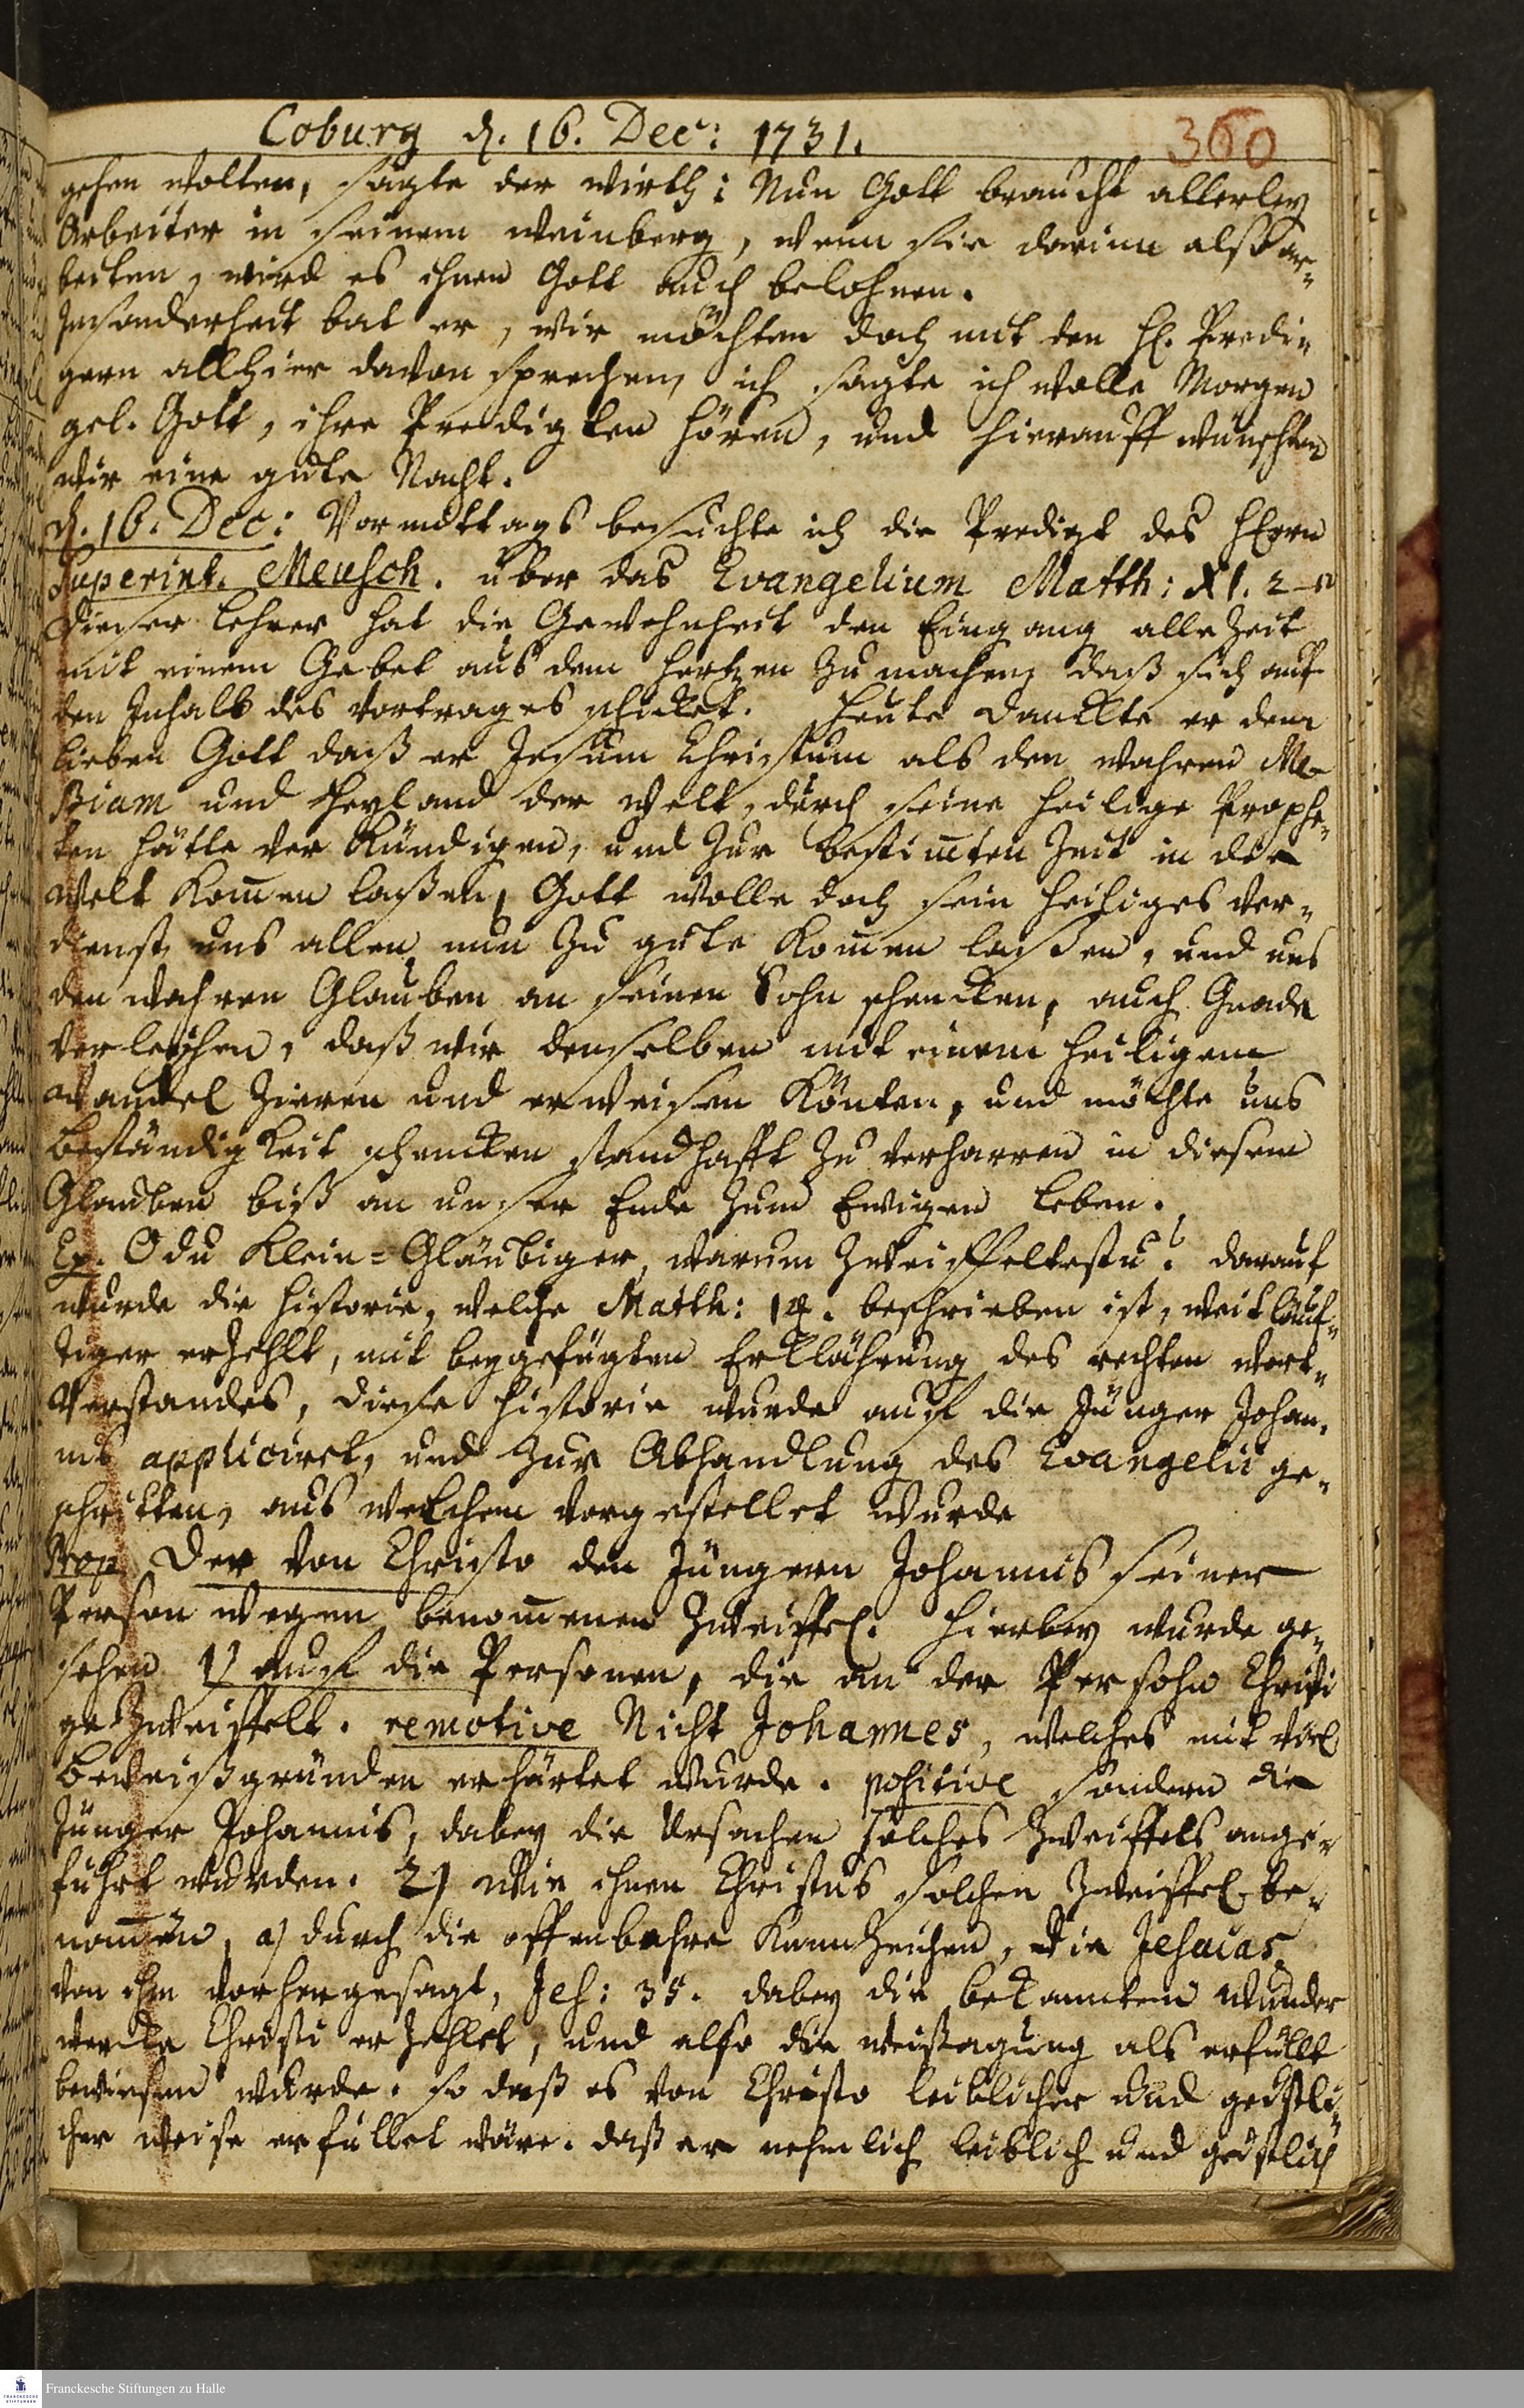 Coburg d. 16. Dec: 1731.
360
gehen wolten, sagte der wirth: Nun Gott braucht allerley
Arbeiter in seinem weinberg, wenn sie darinn alß ar-
beiten, wird es ihnen Gott auch belohnen.
Insonderheit bat er, wir möchten doch mit den H. Predi-
gern allhier davon sprechen, ich sagte ich wolle Morgen
gel. Gott, ihre Predigten hören, und hierauff wünschten
wir eine gute Nacht.
d. 16. Dec: Vormittags besuchte ich die Predigt des Herrn
Superint. Meusch. über das Evangelium Matth: XI. 2-10
Dieser Lehrer hat die Gewohnheit den Eingang alle Zeit
mit einem Gebet aus dem Hertzen zu machen, daß sich auf
den Inhalt des Vortrages schicket. Heute danckte er dem
lieben Gott daß er Jesum Christum als den wahren Me-
ßiam und Heyland der Welt, durch seine heilige Prophe-
ten hätte ver Kündigen, und zur bestim̅ten Zeit in die
Welt Kom̅en laßen, Gott wolle doch sein heiliges Ver-
dienst uns allen nun zu gute Kom̅en laßen, und uns
den wahren Glauben an seinen Sohn schencken, auch Gnade
verleyhen, daß wir denselben mit einem heiligem
Wandel zieren und erweisen Könten, und möchte uns
Beständigkeit schencken standhafft zu verharren in diesem
Glauben biß an unser Ende zum Ewigen Leben.
Ex. O du Klein-Gläubiger, warum zweiffeltestu? darauf
wurde die Historie, welche Matth: 14. beschrieben ist, weitläuf-
tiger erzehlt, mit beygefügten Erklährung des rechten Wort-
Verstandes, diese Historie wurde auff die Jünger Johan-
nis applicirt, und zur Abhandlung des Evangelii ge-
schritten, aus welchem vorgestellet wurde
Prop. Der von Christo den Jüngern Johannis seiner
Person wegen benom̅enen Zweiffel. Hierbey wurde ge-
sehen 1) auff die Personen, die an der Persohn Christi
gezweiffelt. remotive Nicht Johannes, welches mit viel
Beweißgründen erhärtet wurde. positive sondern die
Jünger Johannis, dabey die Ursachen solches Zweiffels ange-
führt wurden. 2) Wie ihnen Christus solchen Zweiffel be-
nom̅en, a) durch die offenbahre Kennzeichen, die Jesaias
von ihm vorhergesagt, Jes: 35. dabey die bekannten Wunder
wercke Christi erzehlet, und also die weißagung als erfüllt
bewiesen wurde. so daß es von Christo leiblicher und geistli-
cher weise erfüllet wäre. daß er nehmlich leiblich und geistlich
Franckesche Stiftungen zu Halle